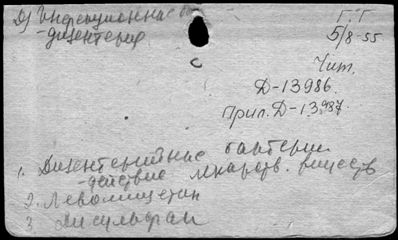 Д) Инфекционные б
- дизентерия
Г-Г
5/8-55
Чит.
Д-13986.
Прил. Д-13987.
1. Дизентерийные бактерии
- действие лекарств. веществ
2. Левомицетин
3 Дисульфан